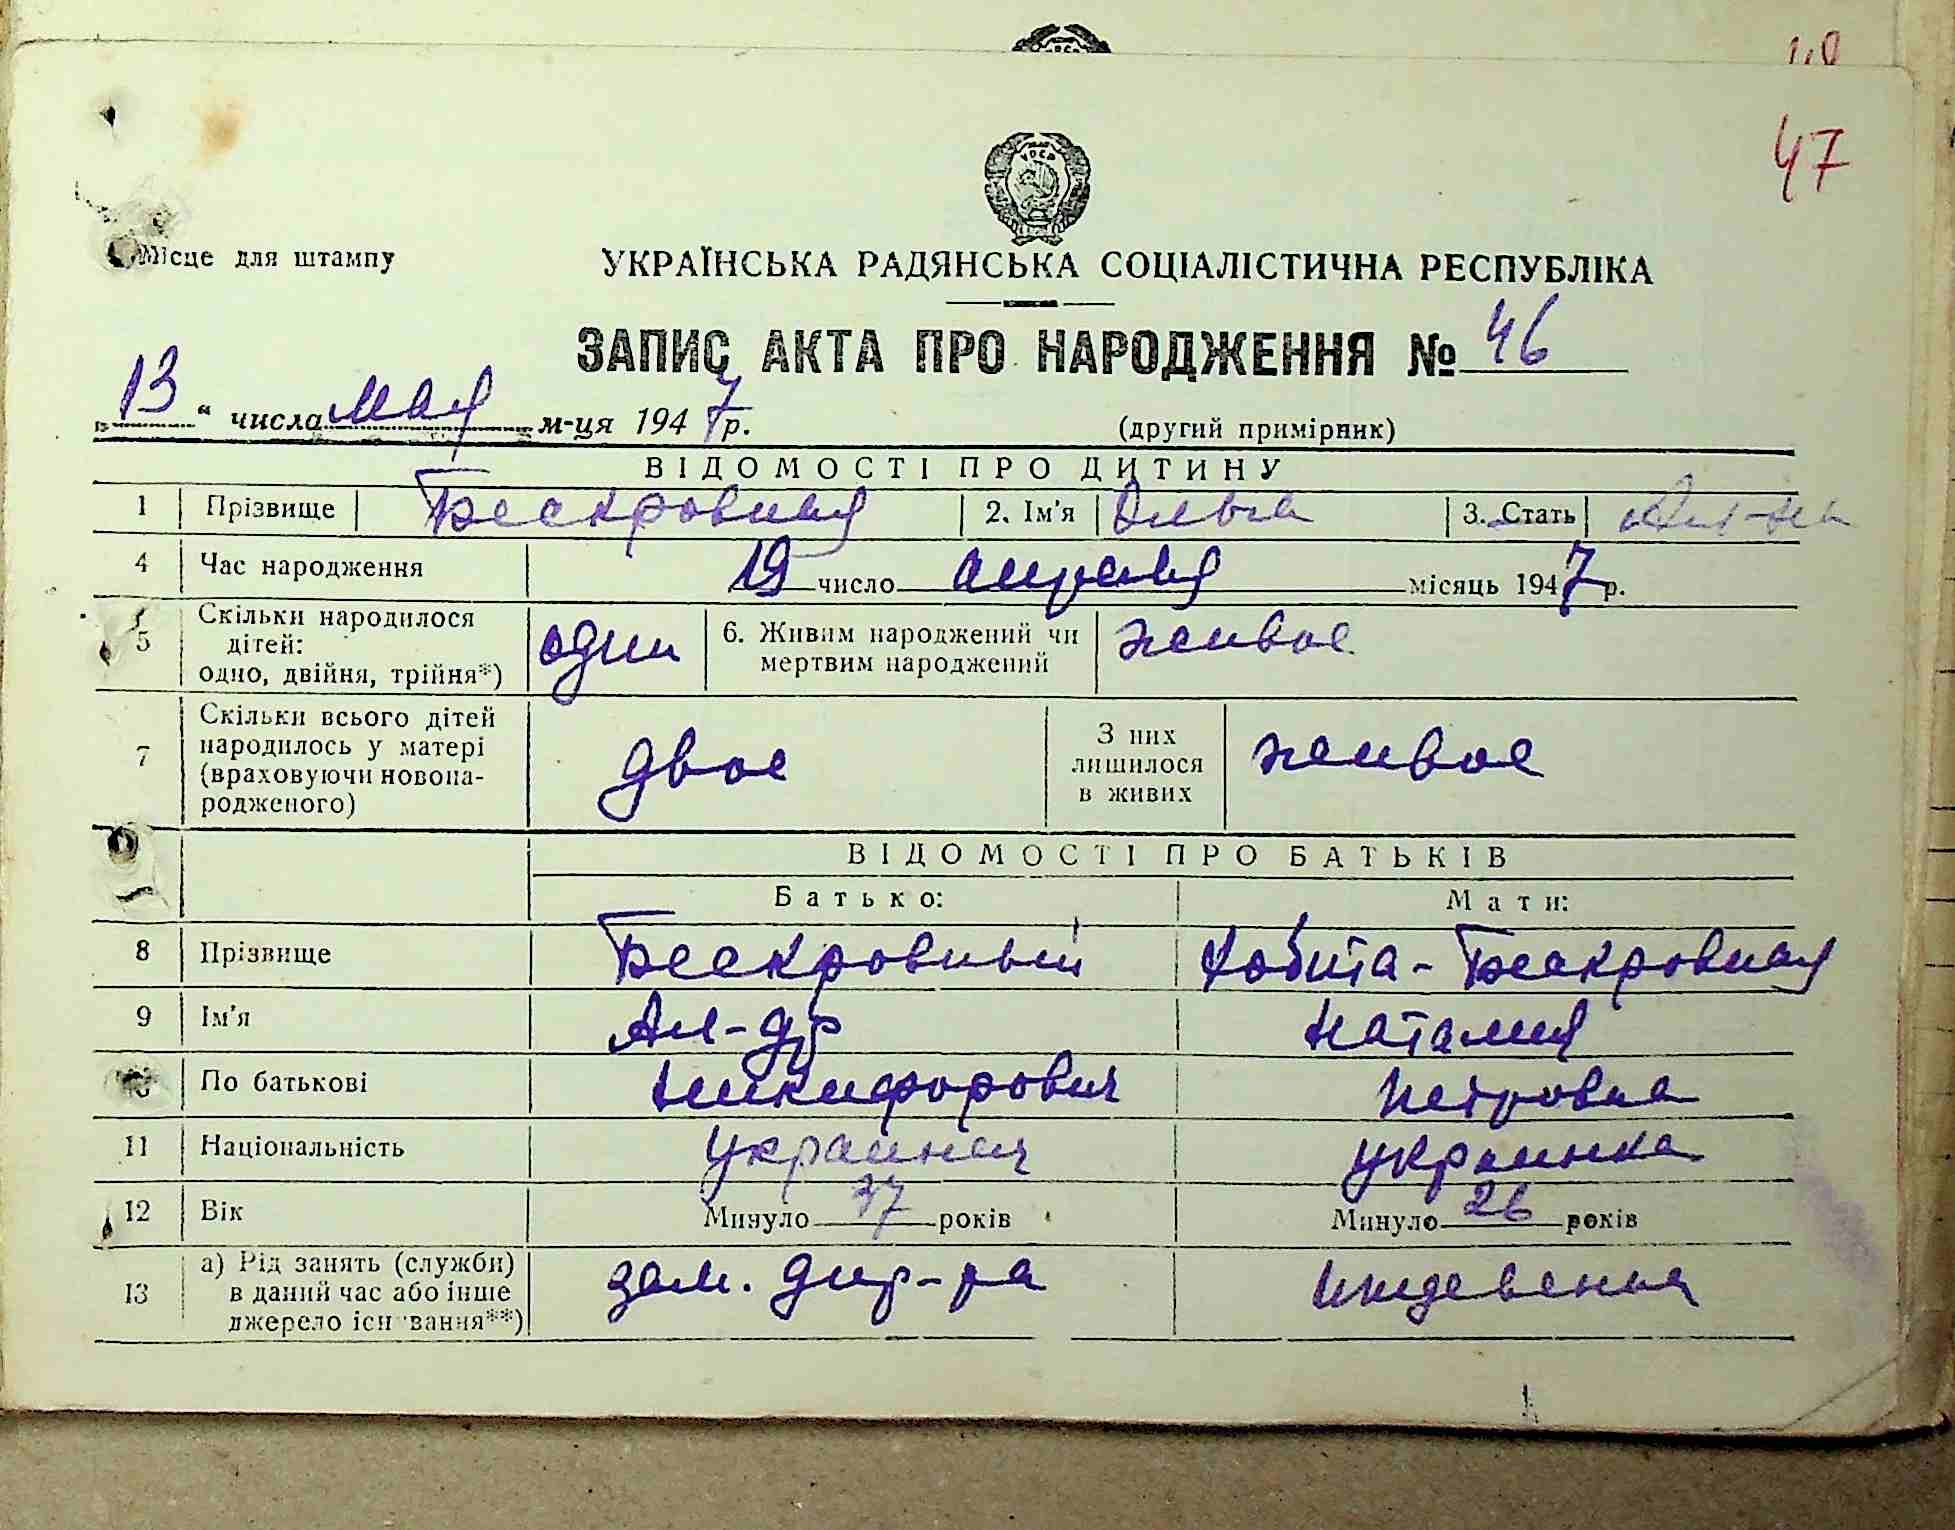 47
УРСР
Місце для штампу
УКРАЇНСЬКА РАДЯНСЬКА СОЦІАЛІСТИЧНА РЕСПУБЛІКА
ЗАПИС АКТА ПРО НАРОДЖЕННЯ № 46
„13“ числа мая м-ця 1947 р. (другий примірник)
ВІДОМОСТІ ПРО ДИТИНУ
1 Прізвище Бескровная 2. Ім'я Ольга 3. Стать
4 Час народження 19 число апреля місяць 1947 р.
5 Скільки народилося дітей: одно, двійня, трійня*) один 6. Живим народжений чи мертвим народжений живое
7 Скільки всього дітей народилось у матері (враховуючи новонародженого) двое З них лишилося в живих живое
ВІДОМОСТІ ПРО БАТЬКІВ
Батько: Мати:
8 Прізвище Бескровный Хобита-Бескровная
9 Ім'я Ал-др Наталия
10 По батькові Никифорович Петровна
11 Національність украинец украинка
12 Вік Минуло 37 років Минуло 26 років
13 а) Рід занять (служби) в даний час або інше джерело існування**) зам. дир-ра иждевенья